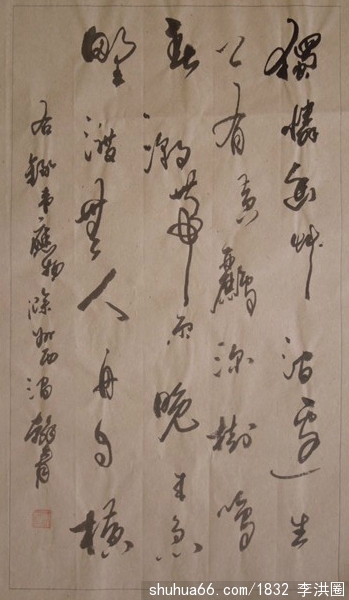 獨憐幽艸澗邊生
上有黄鸝深樹鳴
春潮帶雨晚来急
野渡無人舟自横
右錄韋應物滁州西澗
shuhua66.com/1832 李洪圈